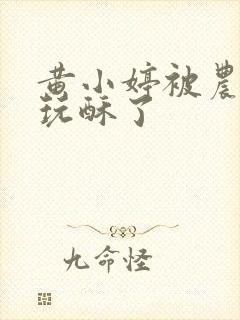 黄小婷被農
玩酥了
九命怪